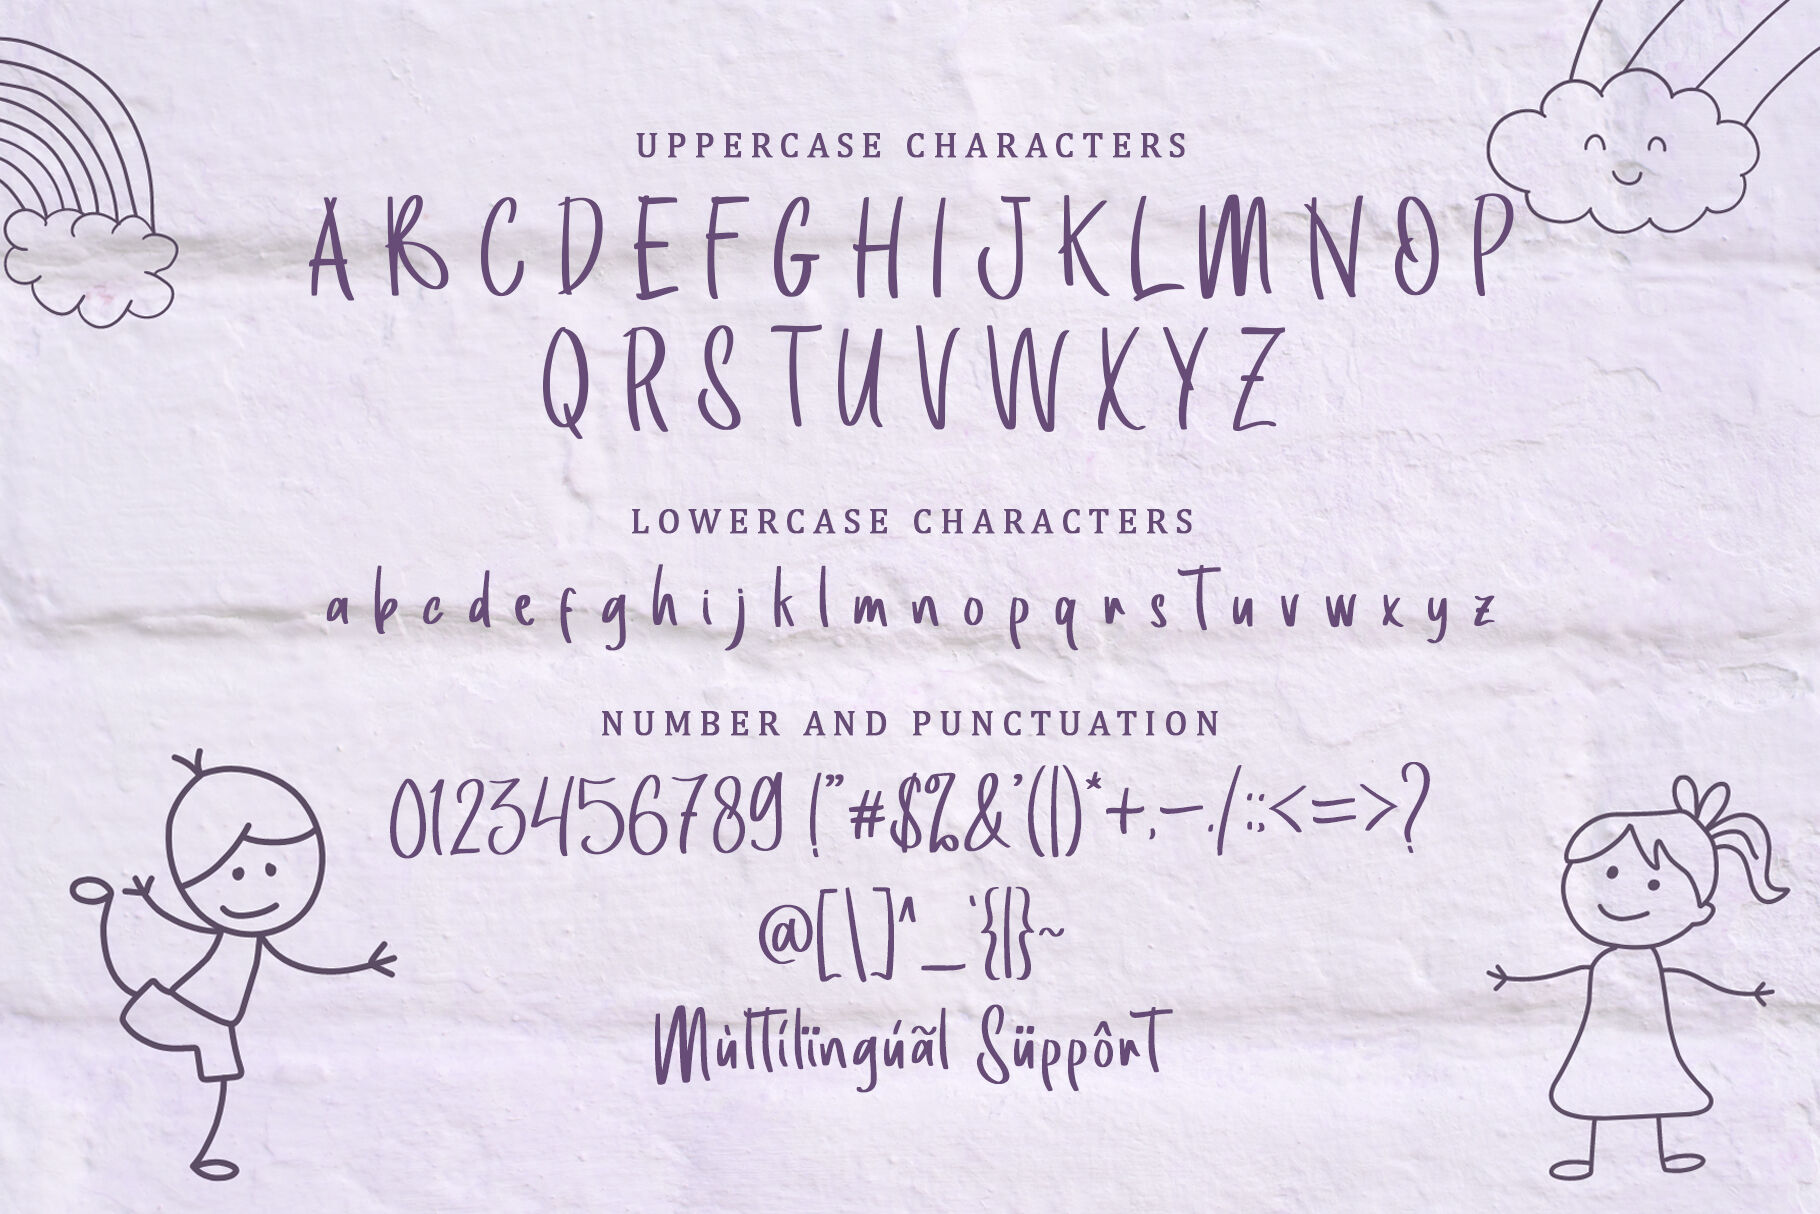 UPPERCASE CHARACTERS
A B C D E F G H I J K L M N O P
Q R S T U V W X Y Z
LOWERCASE CHARACTERS
a b c d e f g h i j k l m n o p q r s t u v w x y z
NUMBER AND PUNCTUATION
0123456789 !"#$%&'(|)*+,-./:;<=>?
@[\]^_`{|}~
Mùltílïngúãl Süppôrt